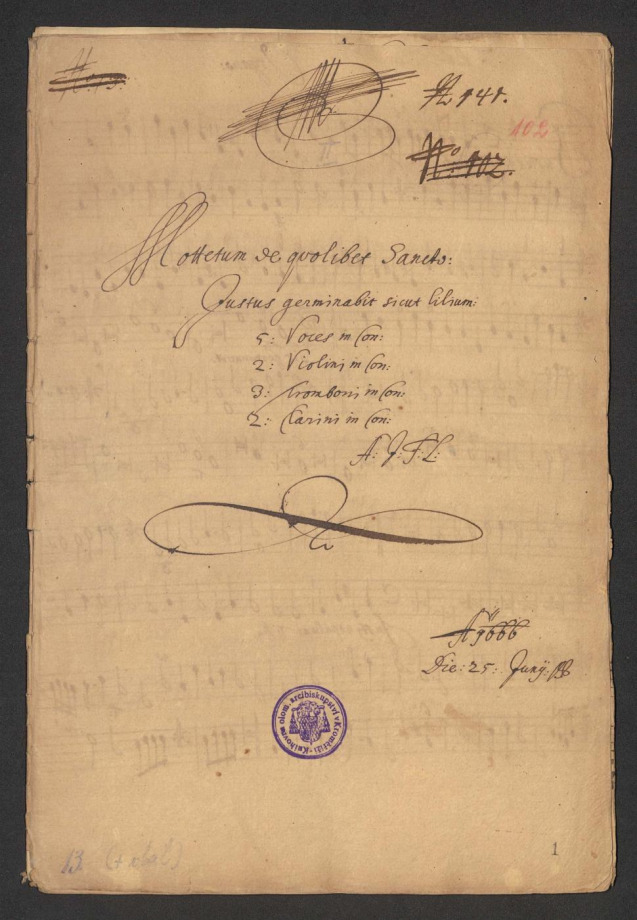 N 141.
102
N:o 102.
Mottetum de qvolibet Sancto:
Justus germinabit sicut lilium:
5: Voces in Con:
2: Violini in Con:
3: Tromboni in Con:
2: Clarini in Con:
A: J: F: L:
A 1666
Die: 25: Junij:
Knihovna olom. arcibiskupství v Kroměříži
13 (+ obal)
1